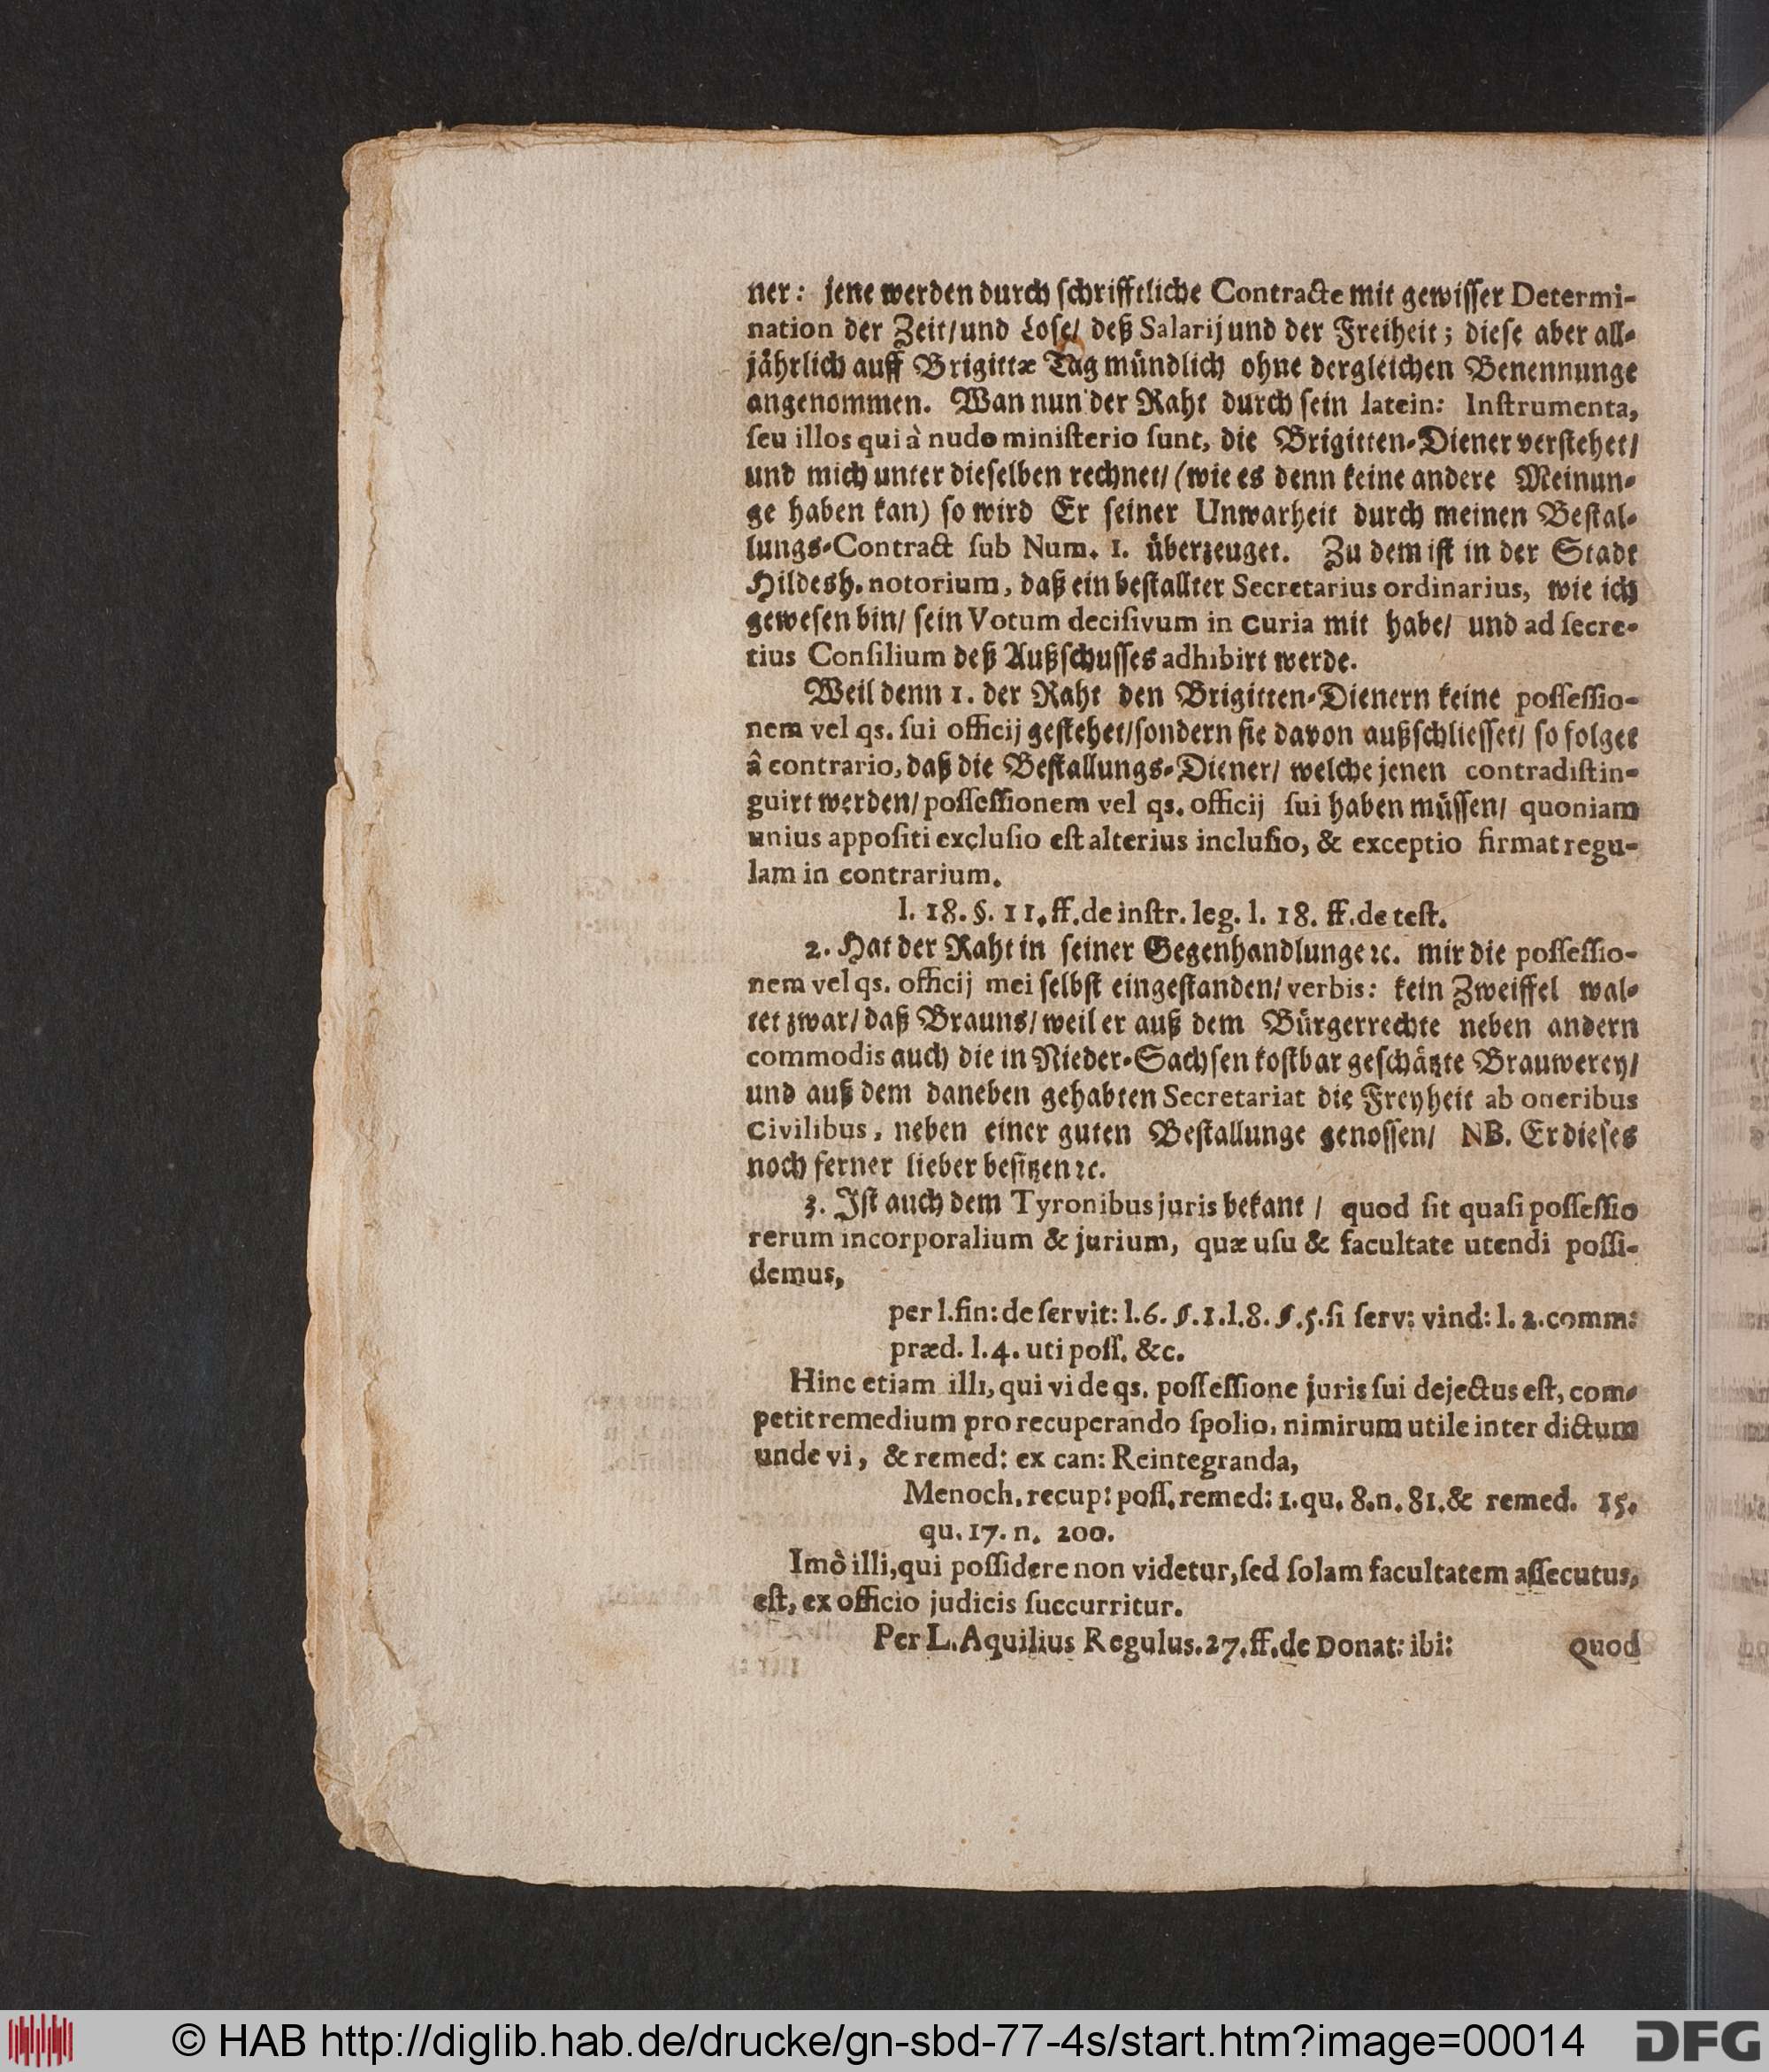 ner: jene werden durch ſchrifftliche Contracte mit gewiſſer Determi-
nation der Zeit/ und Loſe/ deß Salarij und der Freiheit; dieſe aber all-
jährlich auff Brigittæ Tag mündlich ohne dergleichen Benennunge
angenommen. Wan nun der Raht durch ſein latein: Inſtrumenta,
ſeu illos qui à nudo miniſterio ſunt, die Brigitten-Diener verſtehet/
und mich unter dieſelben rechnet/ (wie es denn keine andere Meinun-
ge haben kan) ſo wird Er ſeiner Unwarheit durch meinen Beſtal-
lungs-Contract ſub Num. 1. überzeuget. Zu dem iſt in der Stadt
Hildesh. notorium, daß ein beſtallter Secretarius ordinarius, wie ich
geweſen bin/ ſein Votum deciſivum in Curia mit habe/ und ad ſecre-
tius Conſilium deß Außſchuſſes adhibirt werde.
Weil denn 1. der Raht den Brigitten-Dienern keine poſſeſſio-
nem vel qs. ſui officij geſtehet/ ſondern ſie davon außſchlieſſet/ ſo folget
â contrario, daß die Beſtallungs-Diener/ welche jenen contradiſtin-
guirt werden/ poſſeſſionem vel qs. officij ſui haben müſſen/ quoniam
unius appoſiti excluſio eſt alterius incluſio, & exceptio firmat regu-
lam in contrarium.
l. 18. §. 11. ff. de inſtr. leg. l. 18. ff. de teſt.
2. Hat der Raht in ſeiner Gegenhandlunge ꝛc. mir die poſſeſſio-
nem vel qs. officij mei ſelbſt eingeſtanden/ verbis: kein Zweiffel wal-
tet zwar/ daß Brauns/ weil er auß dem Bürgerrechte neben andern
commodis auch die in Nieder-Sachſen koſtbar geſchätzte Brauwerey/
und auß dem daneben gehabten Secretariat die Freyheit ab oneribus
Civilibus, neben einer guten Beſtallunge genoſſen/ NB. Er dieſes
noch ferner lieber beſitzen ꝛc.
3. Iſt auch dem Tyronibus juris bekant / quod ſit quaſi poſſeſſio
rerum incorporalium & jurium, quæ uſu & facultate utendi poſſi-
demus,
per l. fin: de ſervit: l. 6. §. 1. l. 8. §. 5. ſi ſerv: vind: l. 2. comm:
præd. l. 4. uti poſſ. &c.
Hinc etiam illi, qui vi de qs. poſſeſſione juris ſui dejectus eſt, com-
petit remedium pro recuperando ſpolio, nimirum utile inter dictum
unde vi, & remed: ex can: Reintegranda,
Menoch. recup: poſſ. remed: 1. qu. 8. n. 81. & remed. 15.
qu. 17. n. 200.
Imò illi, qui poſſidere non videtur, ſed ſolam facultatem aſſecutus,
eſt, ex officio judicis ſuccurritur.
Per L. Aquilius Regulus. 27. ff. de Donat: ibi: Quod
© HAB http://diglib.hab.de/drucke/gn-sbd-77-4s/start.htm?image=00014 DFG